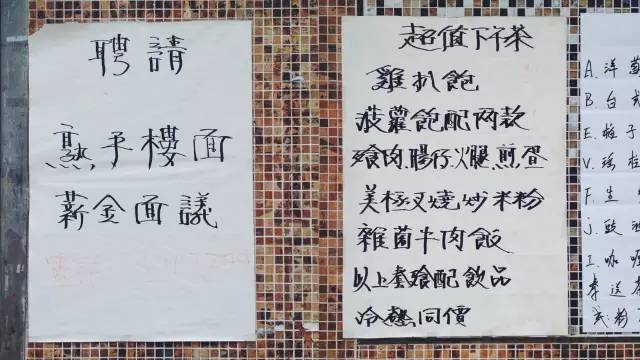 聘請
熟手樓面
薪金面議
超值下午茶
雞扒飽
菠蘿飽配兩款
餐肉.腸仔.火腿.煎蛋
美極叉燒炒米粉
雜菌牛肉飯
以上套餐配飲品
冷熱同價
A. 洋
B 白
E.
V.
F. 生
J.
I. 咖